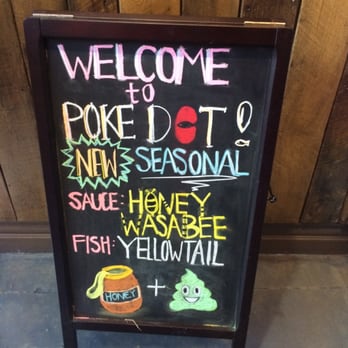 WELCOME
to
POKE DOT!
NEW SEASONAL
SAUCE: HONEY
WASABEE
FISH: YELLOWTAIL
HONEY +